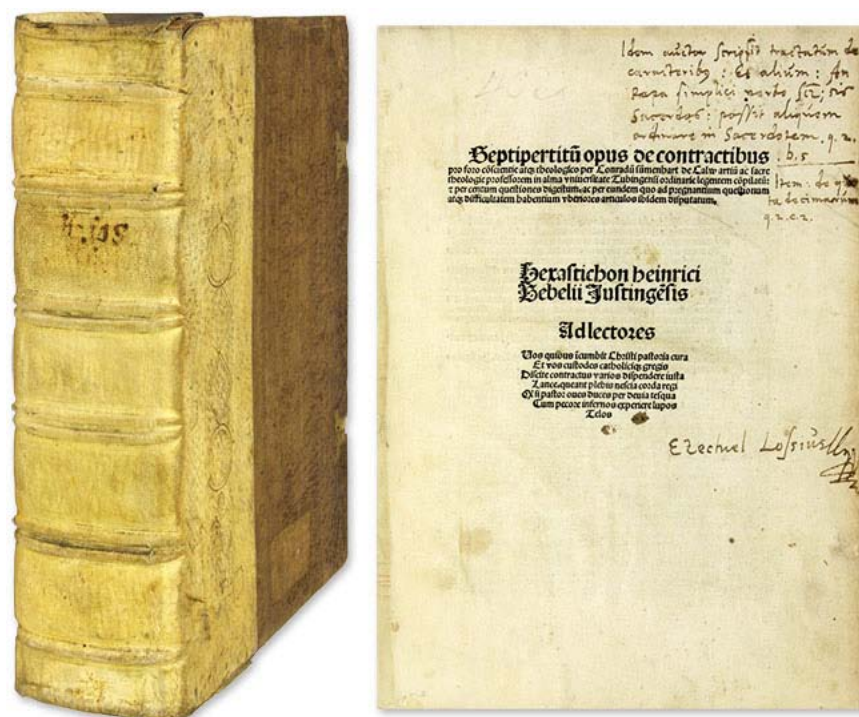 Idem auctor scripsit tractatum de
caracteribus : Et alium : An
Papa simplici verbo scz; sis
Sacerdos : possit aliquem
ordinare in Sacerdotem. q. 2.
b. 5
Septipertitū opus de contractibus
pro foro cōscientie atqȝ theologico per Conradū sūmenhart de Calw artiū ac sacre
theologie professorem in alma vniuersitate Tubingēsi ordinarie legentem cōpilatū:
ꝛ per centum questiones digestum. ac per eundem quo ad pregnantium questionum
atqȝ difficultatem habentium vberiores articulos ibidem disputatum.
Item : de
ta decimarum
q. 2. c. 2.
Hexastichon heinrici
Bebelii Justingēsis
Ad lectores
Uos quibus īcumbit Christi pastoria cura
Et vos custodes catholiciqȝ gregis
Discite contractus varios dispendere iusta
Lance. queant plebis nescia corda regi
Ni si pastor oues duces per deuia tesqua
Cum pecore infernos experiere lupos
Telos
Ezechiel Lossius